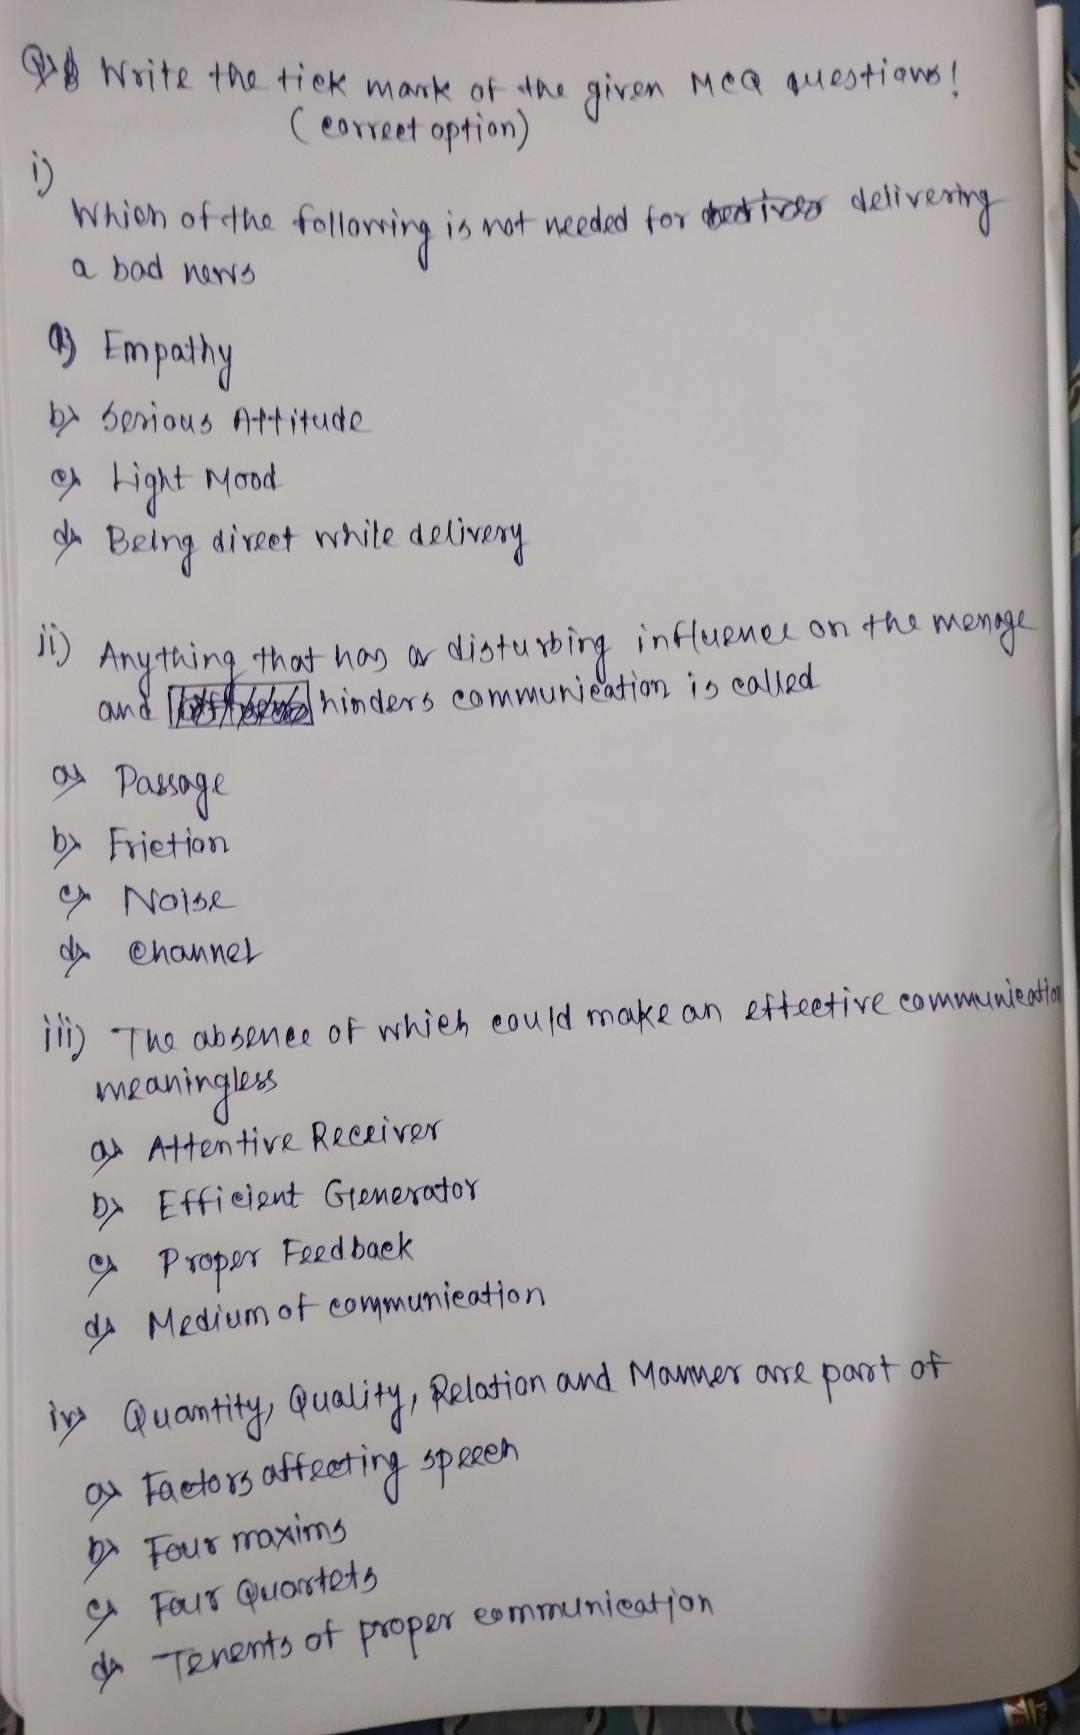 Write the tick mark of the given MCQ questions!
(correct option)
i)
Which of the following is not needed for delivering
a bad news
a) Empathy
b) Serious Attitude
c) Light Mood
d) Being direct while delivery
ii) Anything that has a disturbing influence on the message
and hinders communication is called
a) Passage
b) Friction
c) Noise
d) Channel
iii) The absence of which could make an effective communication
meaningless
a) Attentive Receiver
b) Efficient Generator
c) Proper Feedback
d) Medium of communication
iv) Quantity, Quality, Relation and Manner are part of
a) Factors affecting speech
b) Four maxims
c) Four Quartets
d) Tenents of proper communication